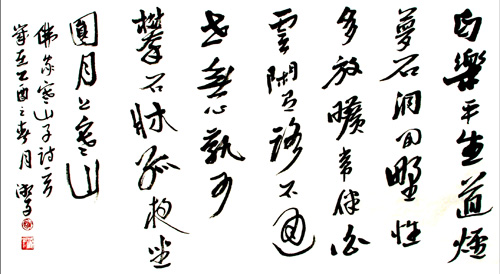 自樂平生道煙
蘿石洞间野性
多放曠常伴白
雲閑有路不通
世無心孰可
攀石牀孤夜坐
圓月上寒山
佛家寒山子詩一首
歲在乙酉之春月